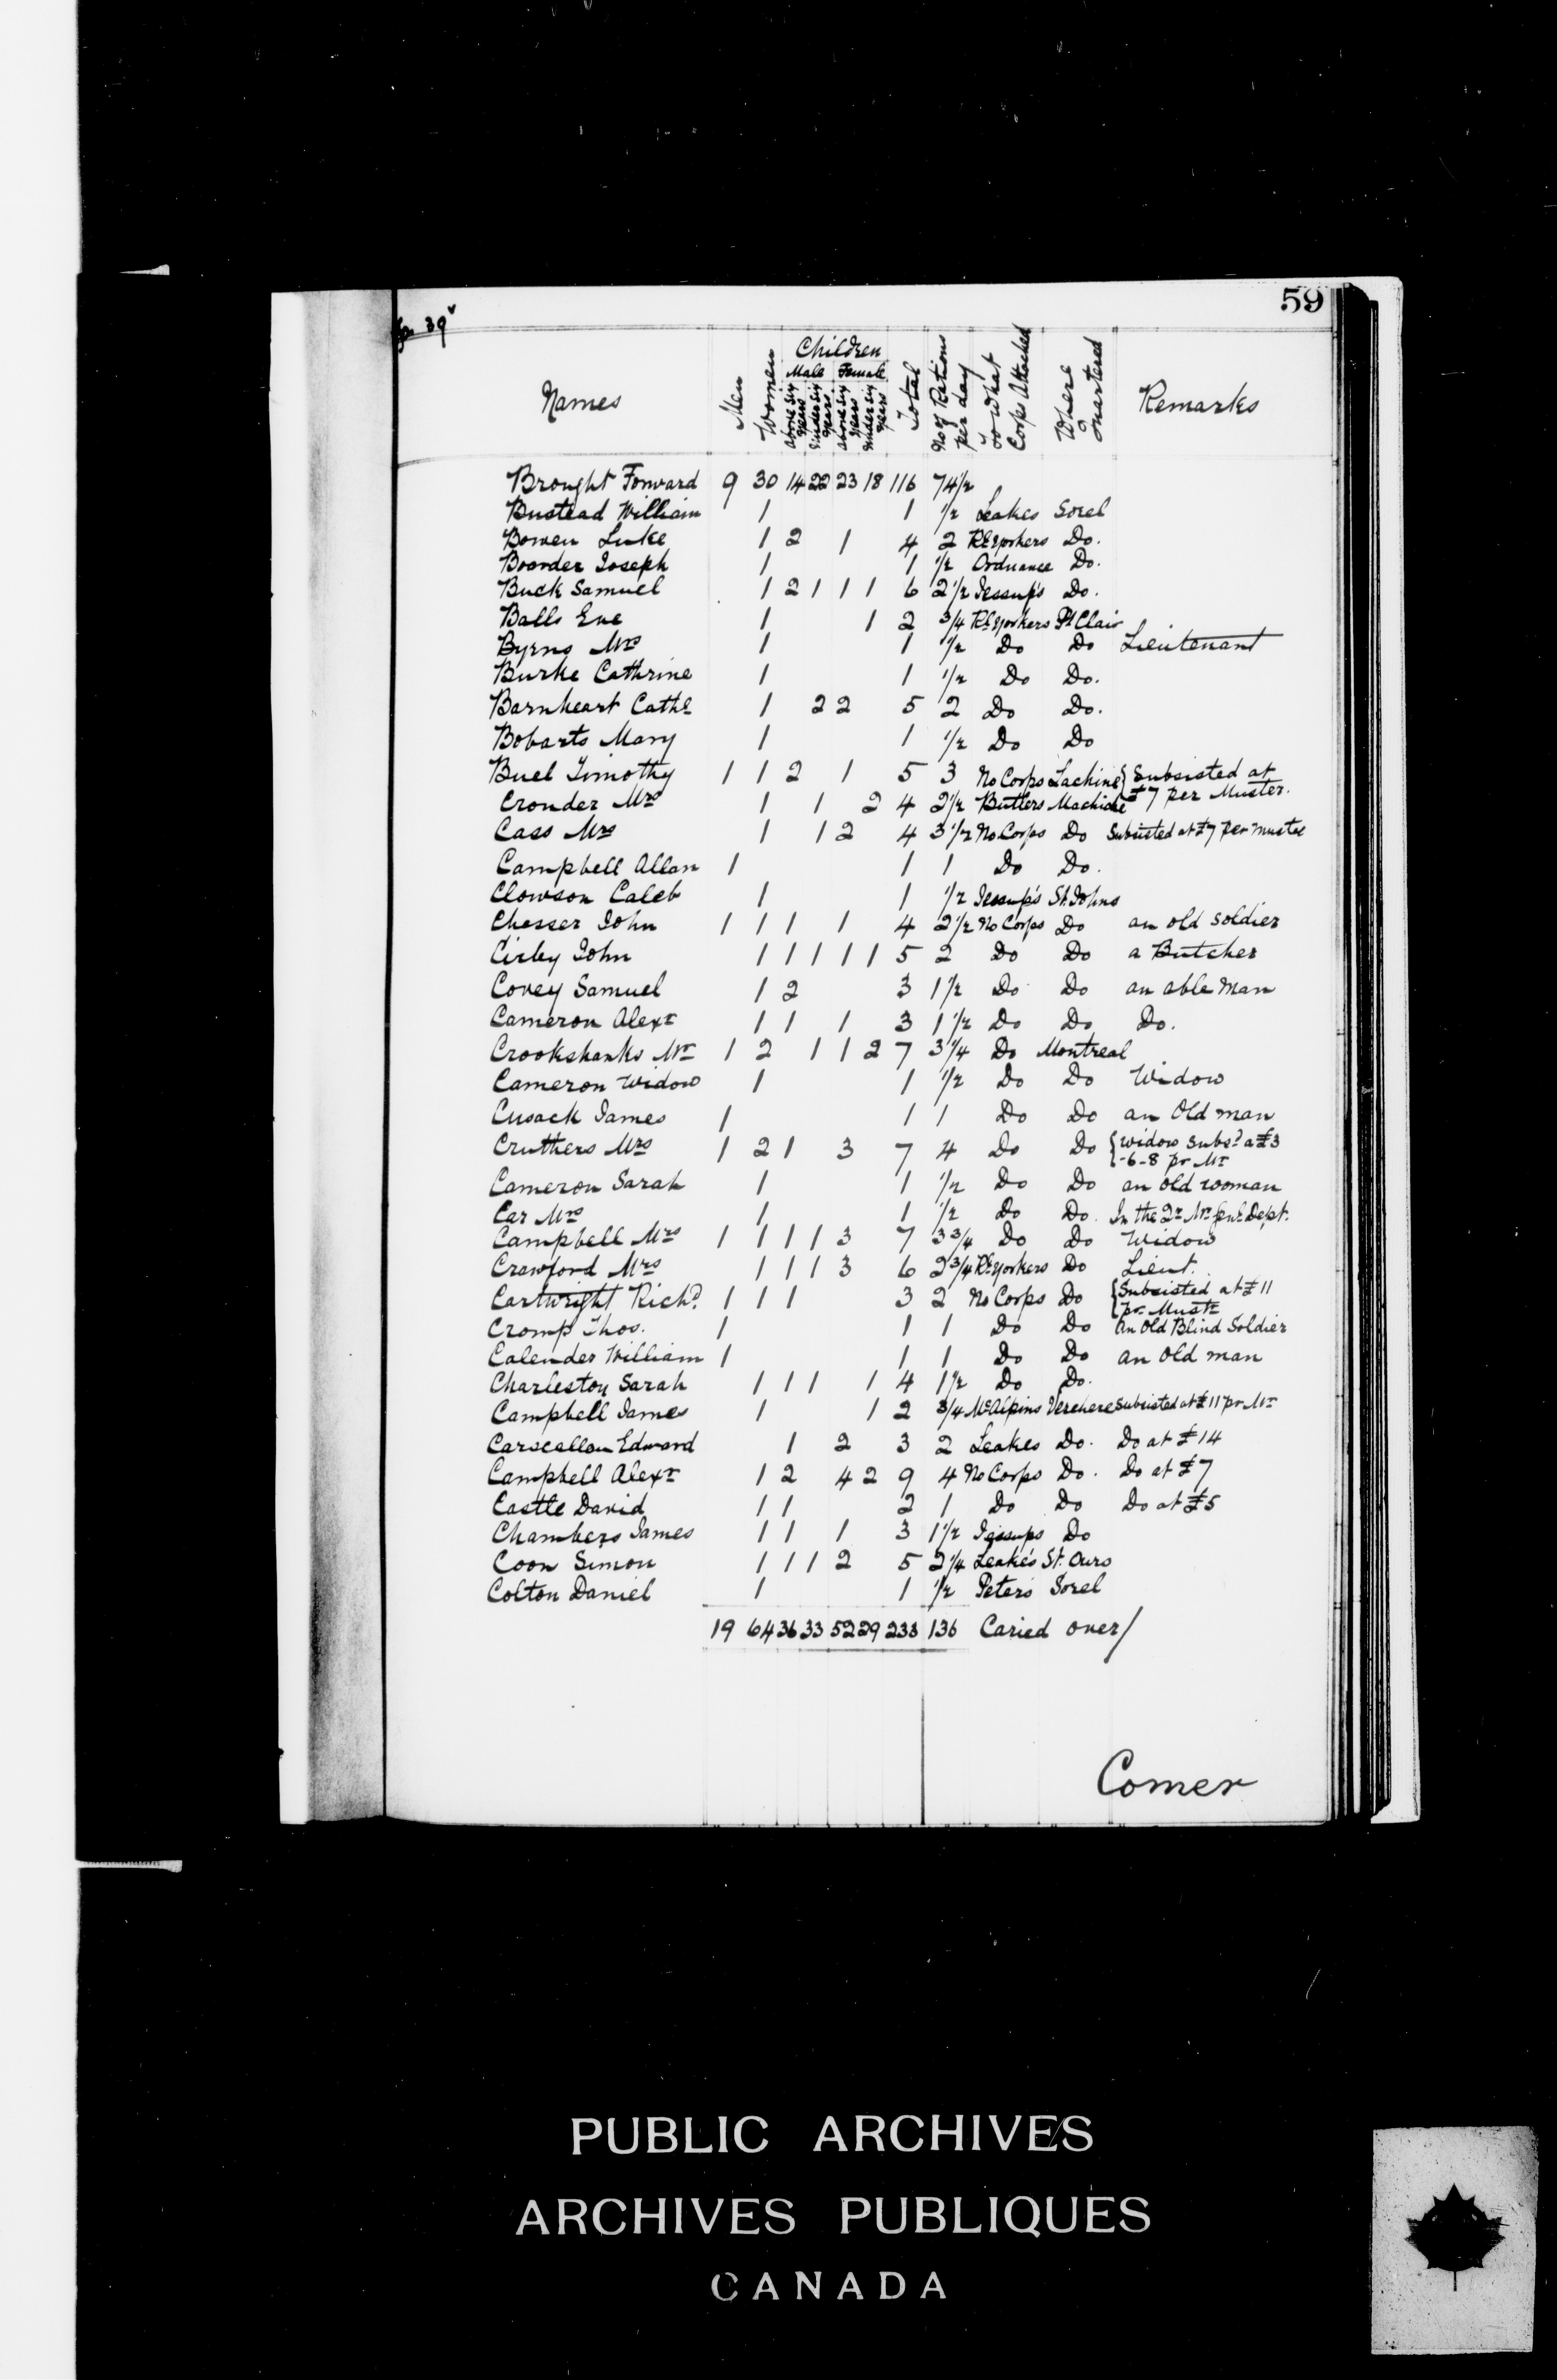 59
fo. 39v
Names Men Women Children Male above six years under six years Female above six years under six years Total No of Rations per day To What Corps Attached Where Quartered Remarks
Brought Forward 9 30 14 22 23 18 116 74½
Bustead William 1 1 ½ Leakes Sorel
Bowen Luke 1 2 1 4 2 Rl Yorkers Do.
Boarder Joseph 1 1 ½ Ordnance Do.
Buck Samuel 1 2 1 1 1 6 2½ Jessup's Do.
Balls Eve 1 1 2 ¾ Rl Yorkers Pt Clair
Byrns Mrs 1 1 ½ Do Do Lieutenant
Burke Cathrine 1 1 ½ Do Do.
Barnheart Cathe 1 2 2 5 2 Do Do.
Bobarts Mary 1 1 ½ Do Do
Buel Timothy 1 1 2 1 5 3 No Corps Lachine { Subsisted at
£7 per Muster.
Cronder Mrs 1 1 2 4 2½ Butlers Machiche
Cass Mrs 1 1 2 4 3½ No Corps Do Subsisted at £7 per muste
Campbell Allan 1 1 1 Do Do.
Clowson Caleb 1 1 ½ Jessup's St. Johns
Chesser John 1 1 1 1 4 2½ No Corps Do an old soldier
Cirby John 1 1 1 1 1 5 2 Do Do a Butcher
Covey Samuel 1 2 3 1½ Do Do an able man
Cameron Alexr 1 1 1 3 1½ Do Do Do.
Crookshanks Mr 1 2 1 1 2 7 3¼ Do Montreal
Cameron Widow 1 1 ½ Do Do Widow
Cusack James 1 1 1 Do Do an Old man
Cruthers Mrs 1 2 1 3 7 4 Do Do { widow subsd a £3
-6-8 pr Mr
Cameron Sarah 1 1 ½ Do Do an old woman
Car Mrs 1 1 ½ Do Do. In the Qr Mr Genl Dept.
Campbell Mrs 1 1 1 1 3 7 3¾ Do Do Widow
Crawford Mrs 1 1 1 3 6 2¾ Rl Yorkers Do Lieut.
Cartwright Richd. 1 1 1 3 2 No Corps Do { Subsisted at £11
pr Muste
Cromp Thos. 1 1 1 Do Do an Old Blind Soldier
Calender William 1 1 1 Do Do an old man
Charleston Sarah 1 1 1 1 4 1½ Do Do.
Campbell James 1 1 2 ¾ McAlpins Verchere Subsisted at £11 pr Mr
Carscallon Edward 1 2 3 2 Leakes Do. Do at £14
Campbell Alexr 1 2 4 2 9 4 No Corps Do. Do at £7
Castle David 1 1 2 1 Do Do Do at £5
Chambers James 1 1 1 3 1½ Jessups Do
Coon Simon 1 1 1 2 5 2¼ Leake's St. Ours
Colton Daniel 1 1 ½ Peters Sorel
19 64 36 33 52 29 233 136 Caried over/
Comer
PUBLIC ARCHIVES
ARCHIVES PUBLIQUES
CANADA